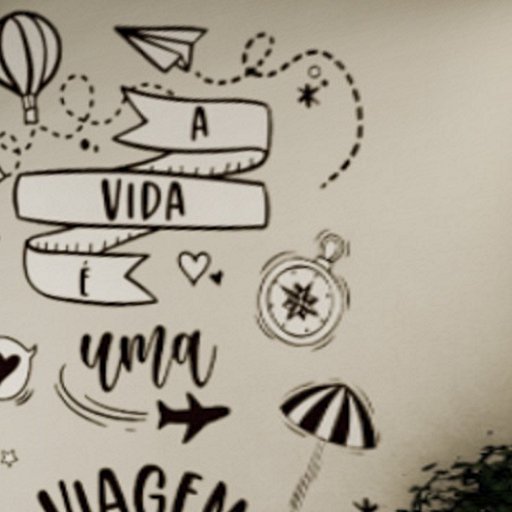 A
VIDA
É
uma
VIAGEM